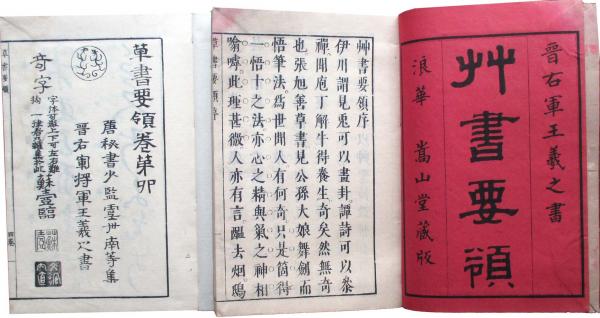 晉右軍王羲之書
艸書要領
浪華 嵩山堂藏版
艸書要領序
伊川謂見兎可以畫卦譚詩可以叅
禪聞庖丁解牛得養生奇矣然無奇
也張旭善草書見公孫大娘舞劍而
悟筆法爲世間人有何奇只是箇得
一悟十之法亦心之精與氣之神相
喻嘑此理甚微人亦有言醒去烟鴟
草書要領序
草書要領卷第卯
唐秘書少監虞世南等集
晉右軍將軍王羲之書
奇字